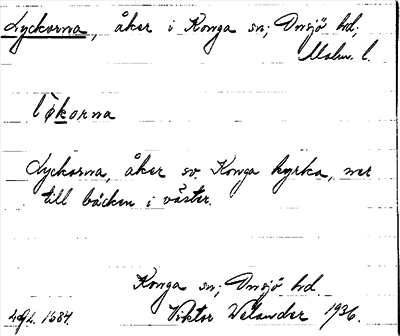 Lyckorna, åker i Konga sn; Onsjö hd;
Malm. l.
lökorna
Lyckorna, åker sv. Konga kyrka, ner
till bäcken i väster.
Konga sn; Onsjö hd.
Viktor Welander 1936.
1684.